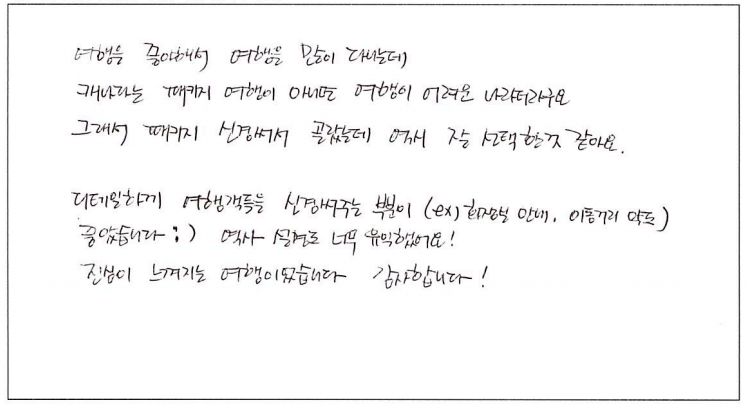 여행을 좋아해서 여행을 많이 다니는데
캐나다는 패키지 여행이 아니면 여행이 어려운 나라더라구요
그래서 패키지 신경써서 골랐는데 역시 잘 선택한것 같아요.
디테일하게 여행객들을 신경써주는 부분이 (ex) 화장실 안내, 이동거리 약도)
좋았습니다 :) 역사 설명도 너무 유익했어요!
진심이 느껴지는 여행이였습니다 감사합니다!